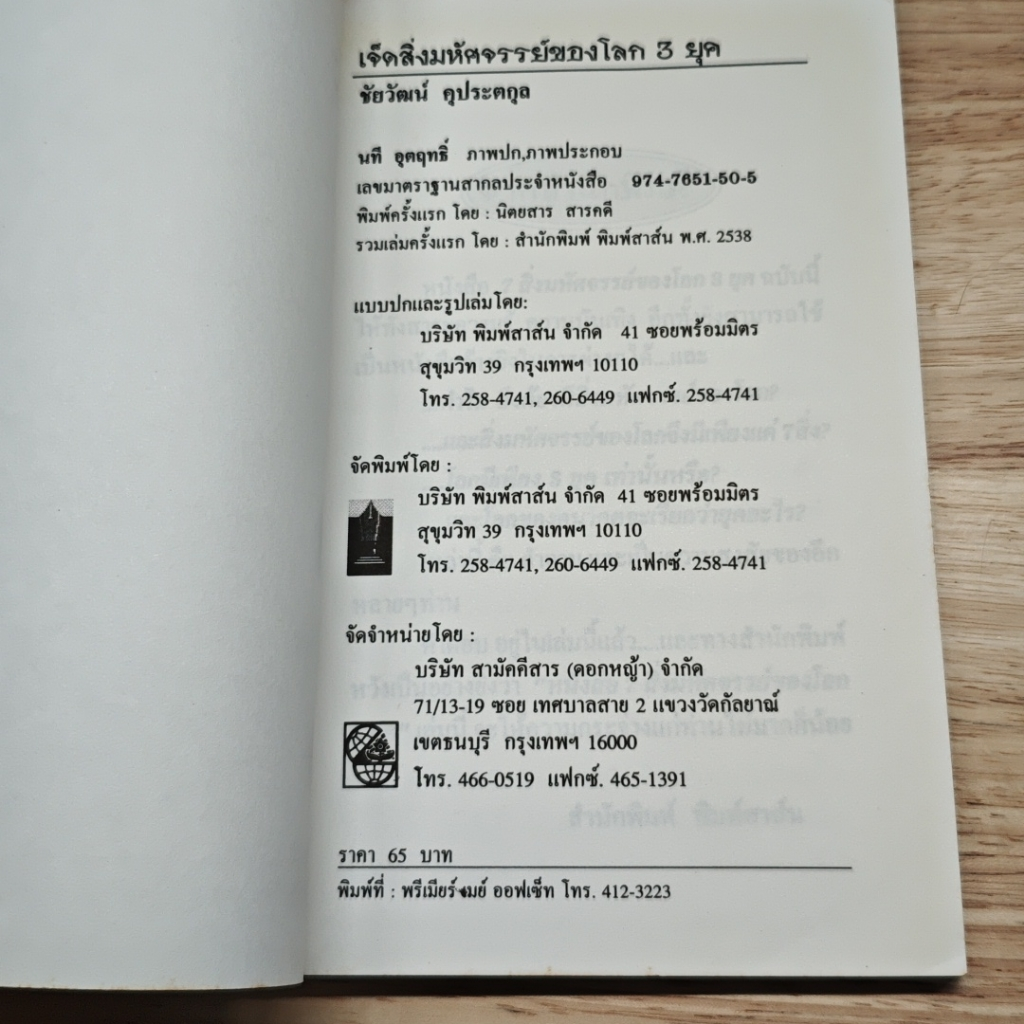 เจ็ดสิ่งมหัศจรรย์ของโลก 3 ยุค
ชัยวัฒน์ คุประตกุล
นที อุตฤทธิ์ ภาพปก,ภาพประกอบ
เลขมาตราฐานสากลประจำหนังสือ 974-7651-50-5
พิมพ์ครั้งแรก โดย : นิตยสาร สารคดี
รวมเล่มครั้งแรก โดย : สำนักพิมพ์ พิมพ์สาส์น พ.ศ. 2538
แบบปกและรูปเล่มโดย:
บริษัท พิมพ์สาส์น จำกัด 41 ซอยพร้อมมิตร
สุขุมวิท 39 กรุงเทพฯ 10110
โทร. 258-4741, 260-6449 แฟกซ์. 258-4741
จัดพิมพ์โดย :
บริษัท พิมพ์สาส์น จำกัด 41 ซอยพร้อมมิตร
สุขุมวิท 39 กรุงเทพฯ 10110
โทร. 258-4741, 260-6449 แฟกซ์. 258-4741
จัดจำหน่ายโดย :
บริษัท สามัคคีสาร (ดอกหญ้า) จำกัด
71/13-19 ซอย เทศบาลสาย 2 แขวงวัดกัลยาณ์
เขตธนบุรี กรุงเทพฯ 16000
โทร. 466-0519 แฟกซ์. 465-1391
ราคา 65 บาท
พิมพ์ที่ : ออฟเซ็ท โทร. 412-3223